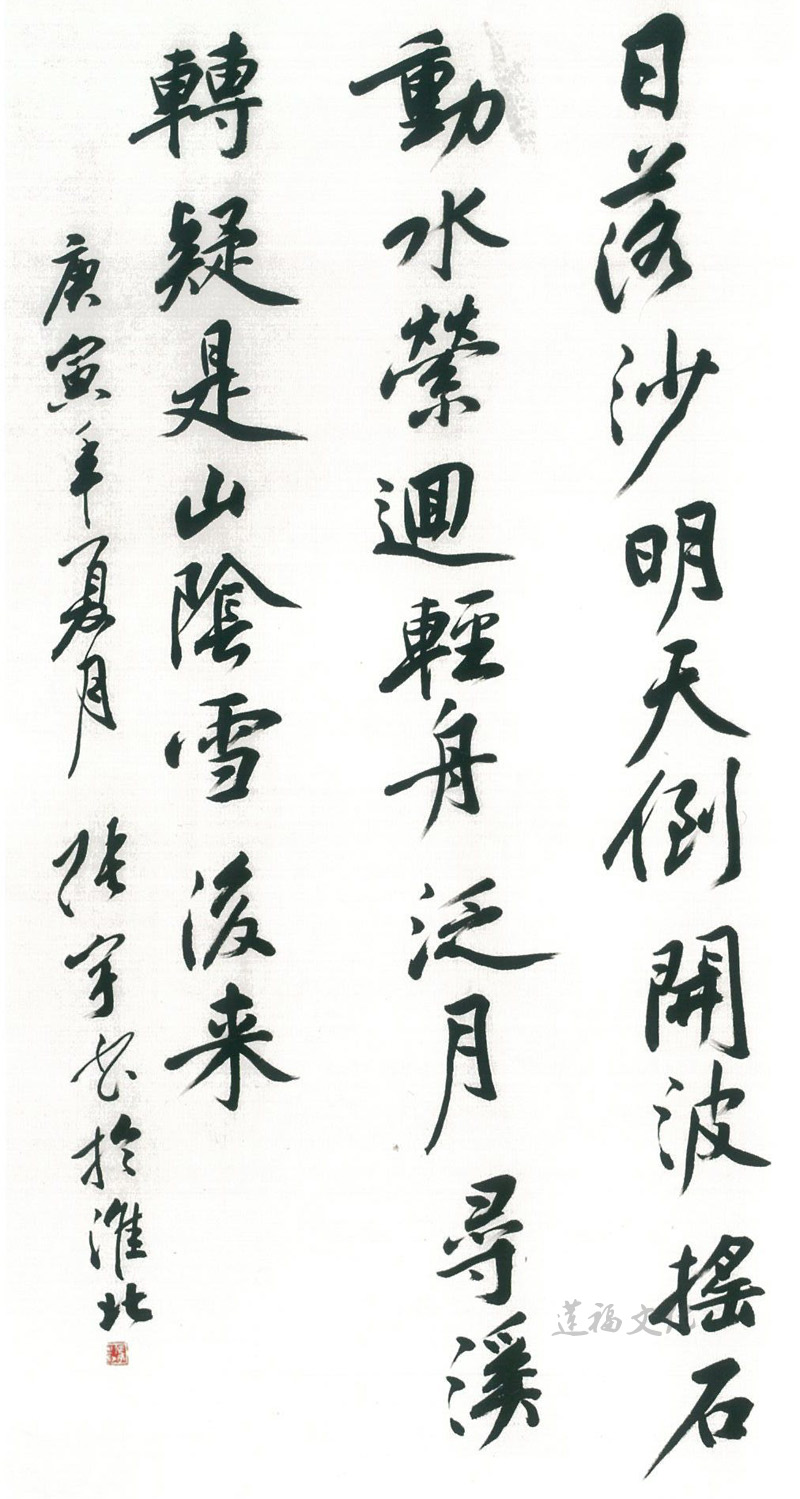 日落沙明天倒開波搖石
動水縈迴輕舟泛月尋溪
轉疑是山陰雪後来
庚寅年夏月 張宇书於淮北
蓮福文化